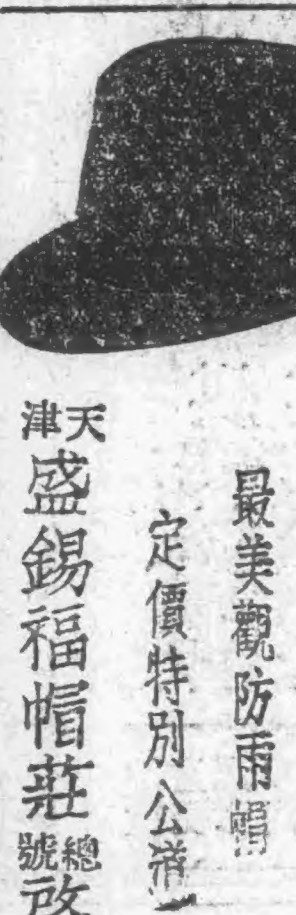 最美觀防雨帽
定價特別公道
天津盛錫福帽莊總號啟